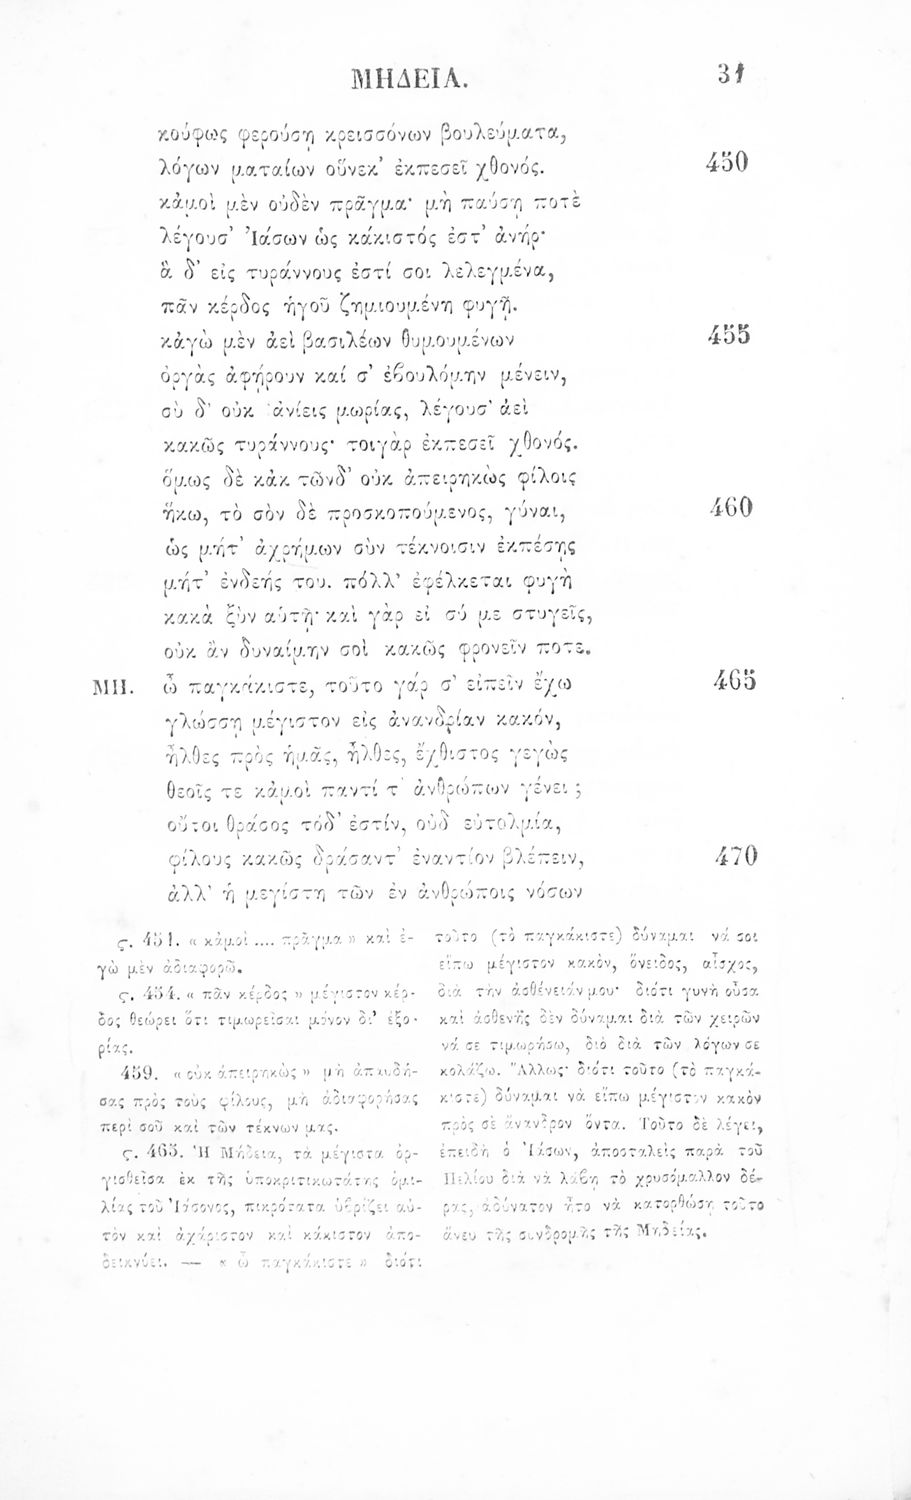 ΜΗΔΕΙΑ. 31
κούφως φερούσῃ κρεισσόνων βουλεύματα,
λόγων ματαίων οὕνεκ' ἐκπεσεῖ χθονός. 450
κἀμοὶ μὲν οὐδὲν πρᾶγμα· μὴ παύσῃ ποτὲ
λέγουσ' Ἰάσων ὡς κάκιστός ἐστ' ἀνήρ·
ἃ δ' εἰς τυράννους ἐστί σοι λελεγμένα,
πᾶν κέρδος ἡγοῦ ζημιουμένη φυγῇ.
κἀγὼ μὲν ἀεὶ βασιλέων θυμουμένων 455
ὀργὰς ἀφῄρουν καί σ' ἐβουλόμην μένειν,
σὺ δ' οὐκ ἀνίεις μωρίας, λέγουσ' ἀεὶ
κακῶς τυράννους· τοιγὰρ ἐκπεσεῖ χθονός.
ὅμως δὲ κἀκ τῶνδ' οὐκ ἀπειρηκὼς φίλοις
ἥκω, τὸ σὸν δὲ προσκοπούμενος, γύναι, 460
ὡς μήτ' ἀχρήμων σὺν τέκνοισιν ἐκπέσῃς
μήτ' ἐνδεής του. πόλλ' ἐφέλκεται φυγὴ
κακὰ ξὺν αὑτῇ· καὶ γὰρ εἰ σύ με στυγεῖς,
οὐκ ἂν δυναίμην σοὶ κακῶς φρονεῖν ποτε.
ΜΗ. ὦ παγκάκιστε, τοῦτο γάρ σ' εἰπεῖν ἔχω 465
γλώσσῃ μέγιστον εἰς ἀνανδρίαν κακόν,
ἦλθες πρὸς ἡμᾶς, ἦλθες, ἔχθιστος γεγὼς
θεοῖς τε κἀμοὶ παντί τ' ἀνθρώπων γένει ;
οὔτοι θράσος τόδ' ἐστίν, οὐδ' εὐτολμία,
φίλους κακῶς δράσαντ' ἐναντίον βλέπειν, 470
ἀλλ' ἡ μεγίστη τῶν ἐν ἀνθρώποις νόσων
ς. 451. « κἀμοὶ .... πρᾶγμα » καὶ ἐ-
γὼ μὲν ἀδιαφορῶ.
ς. 454. « πᾶν κέρδος » μέγιστον κέρ-
δος θεώρει ὅτι τιμωρεῖσαι μόνον δι' ἐξο-
ρίας.
459. « οὐκ ἀπειρηκὼς » μὴ ἀπαυδή-
σας πρὸς τοὺς φίλους, μὴ ἀδιαφορήσας
περὶ σοῦ καὶ τῶν τέκνων μας.
ς. 465. Ἡ Μήδεια, τὰ μέγιστα ὀρ-
γισθεῖσα ἐκ τῆς ὑποκριτικωτάτης ὁμι-
λίας τοῦ Ἰάσονος, πικρότατα ὑβρίζει αὐ-
τὸν καὶ ἀχάριστον καὶ κάκιστον ἀπο-
δεικνύει. — « ὦ παγκάκιστε » διότι
τοῦτο (τὸ παγκάκιστε) δύναμαι νά σοι
εἴπω μέγιστον κακὸν, ὄνειδος, αἶσχος,
διὰ τὴν ἀσθένειάν μου· διότι γυνὴ οὖσα
καὶ ἀσθενὴς δὲν δύναμαι διὰ τῶν χειρῶν
νά σε τιμωρήσω, διὸ διὰ τῶν λόγων σε
κολάζω. Ἄλλως· διότι τοῦτο (τὸ παγκά-
κιστε) δύναμαι νὰ εἴπω μέγιστον κακὸν
πρὸς σὲ ἄνανδρον ὄντα. Τοῦτο δὲ λέγει,
ἐπειδὴ ὁ Ἰάσων, ἀποσταλεὶς παρὰ τοῦ
Πελίου διὰ νὰ λάβῃ τὸ χρυσόμαλλον δέ-
ρας, ἀδύνατον ἦτο νὰ κατορθώσῃ τοῦτο
ἄνευ τῆς συνδρομῆς τῆς Μηδείας.